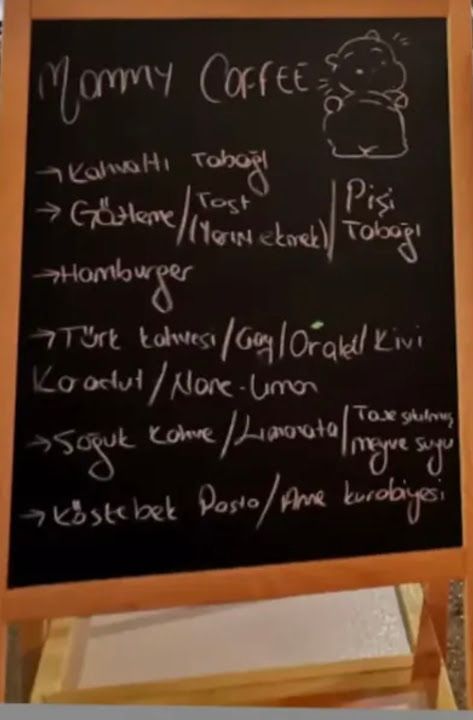 Mommy COFFEE
→ Kahvaltı Tabağı
→ Gözleme / Tost (Yarım ekmek) / Pişi Tabağı
→ Hamburger
→ Türk kahvesi / Çay / Oralet / Kivi
Karadut / Nane-Limon
→ Soğuk kahve / Limonata / Taze sıkılmış meyve suyu
→ Köstebek Pasta / Anne kurabiyesi